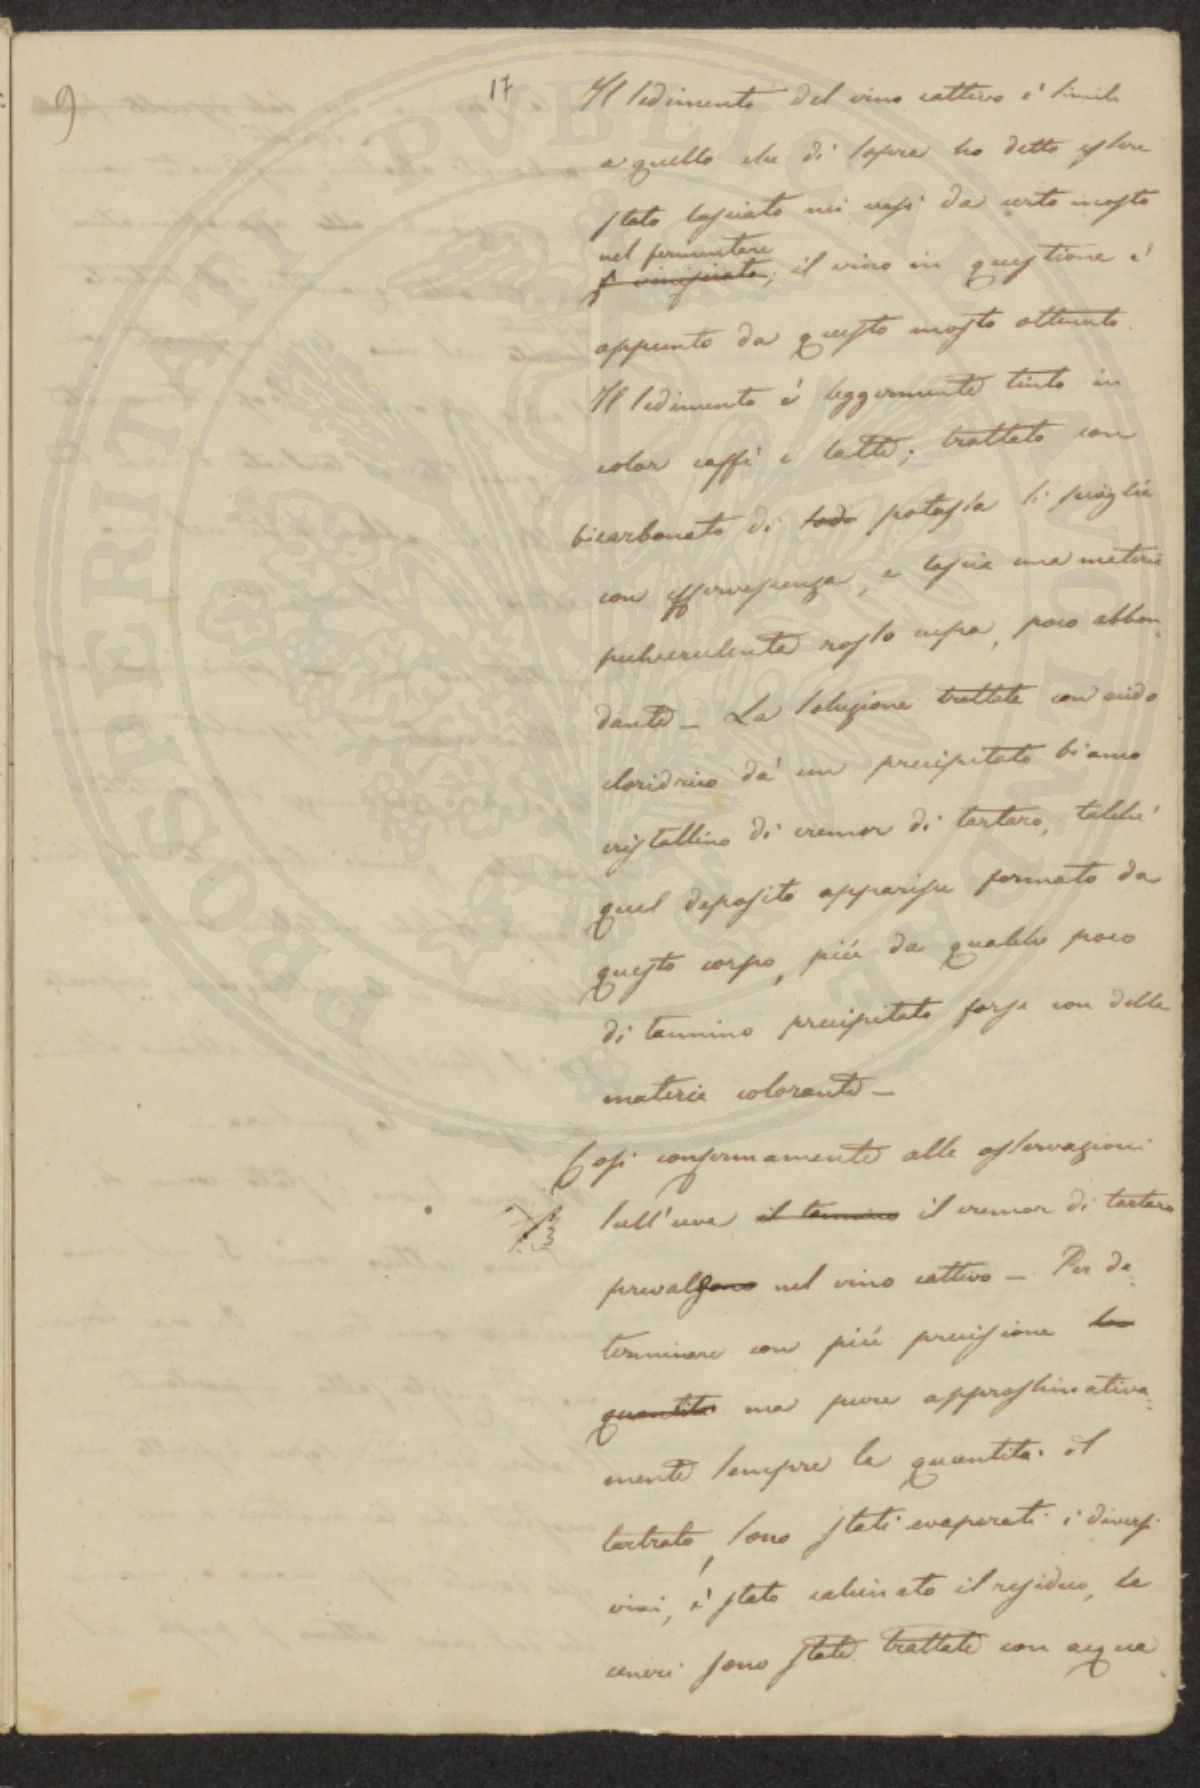 9
17
Il sedimento del vino cattivo è simile
a quello che di sopra ho detto essere
stato lasciato nei vasi da certo mosto
nel fermentare
vinificato; il vino in questione è
appunto da questo mosto ottenuto.
Il sedimento è leggermente tinto in
color caffè e latte; trattato con
bicarbonato di soda potassa si scioglie
con effervescenza, e lascia una materia
pulverulente rosso cupa, poco abbon-
dante — La soluzione trattata con acido
cloridrico dà un precipitato bianco
cristallino di cremor di tartaro, talchè
quel deposito apparisce formato da
questo corpo, più da qualche poco
di tannino precipitato forse con della
materia colorante —
Così conformamente alle osservazioni
sull'uva il tannino il cremor di tartaro
prevalgono nel vino cattivo — Per de-
terminare con più precisione la
quantità ma pure approssimativa-
mente sempre la quantità del
tartrato, sono stati evaporati i diversi
vini, è stato calcinato il residuo, le
ceneri sono state trattate con acqua
PROSPERITATI PVBLICAE AVGENDAE